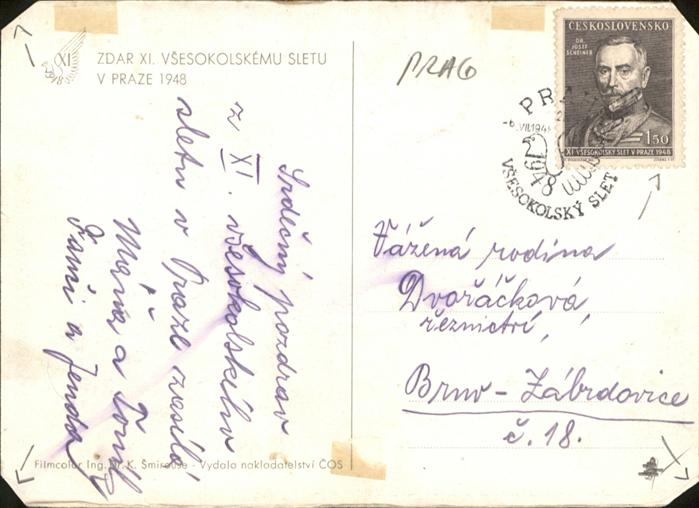 XI
1948
ZDAR XI. VŠESOKOLSKÉMU SLETU
V PRAZE 1948
Srdečný pozdrav
z XI. všesokolského
sletu v Praze zasílá
Máňa a Toník
Fanči a Jenda
Filmcolor Ing. Dr. K. Šmirouse - Vydalo nakladatelství ČOS
PRAG
ČESKOSLOVENSKO
DR. JOSEF SCHEINER
1.50
XI. VŠESOKOLSKÝ SLET V PRAZE 1948
PR
-6.VII.1948
1948
VŠESOKOLSKÝ SLET
Vážená rodina
Dvořáčková
řeznictví,
Brno - Zábrdovice
č. 18.